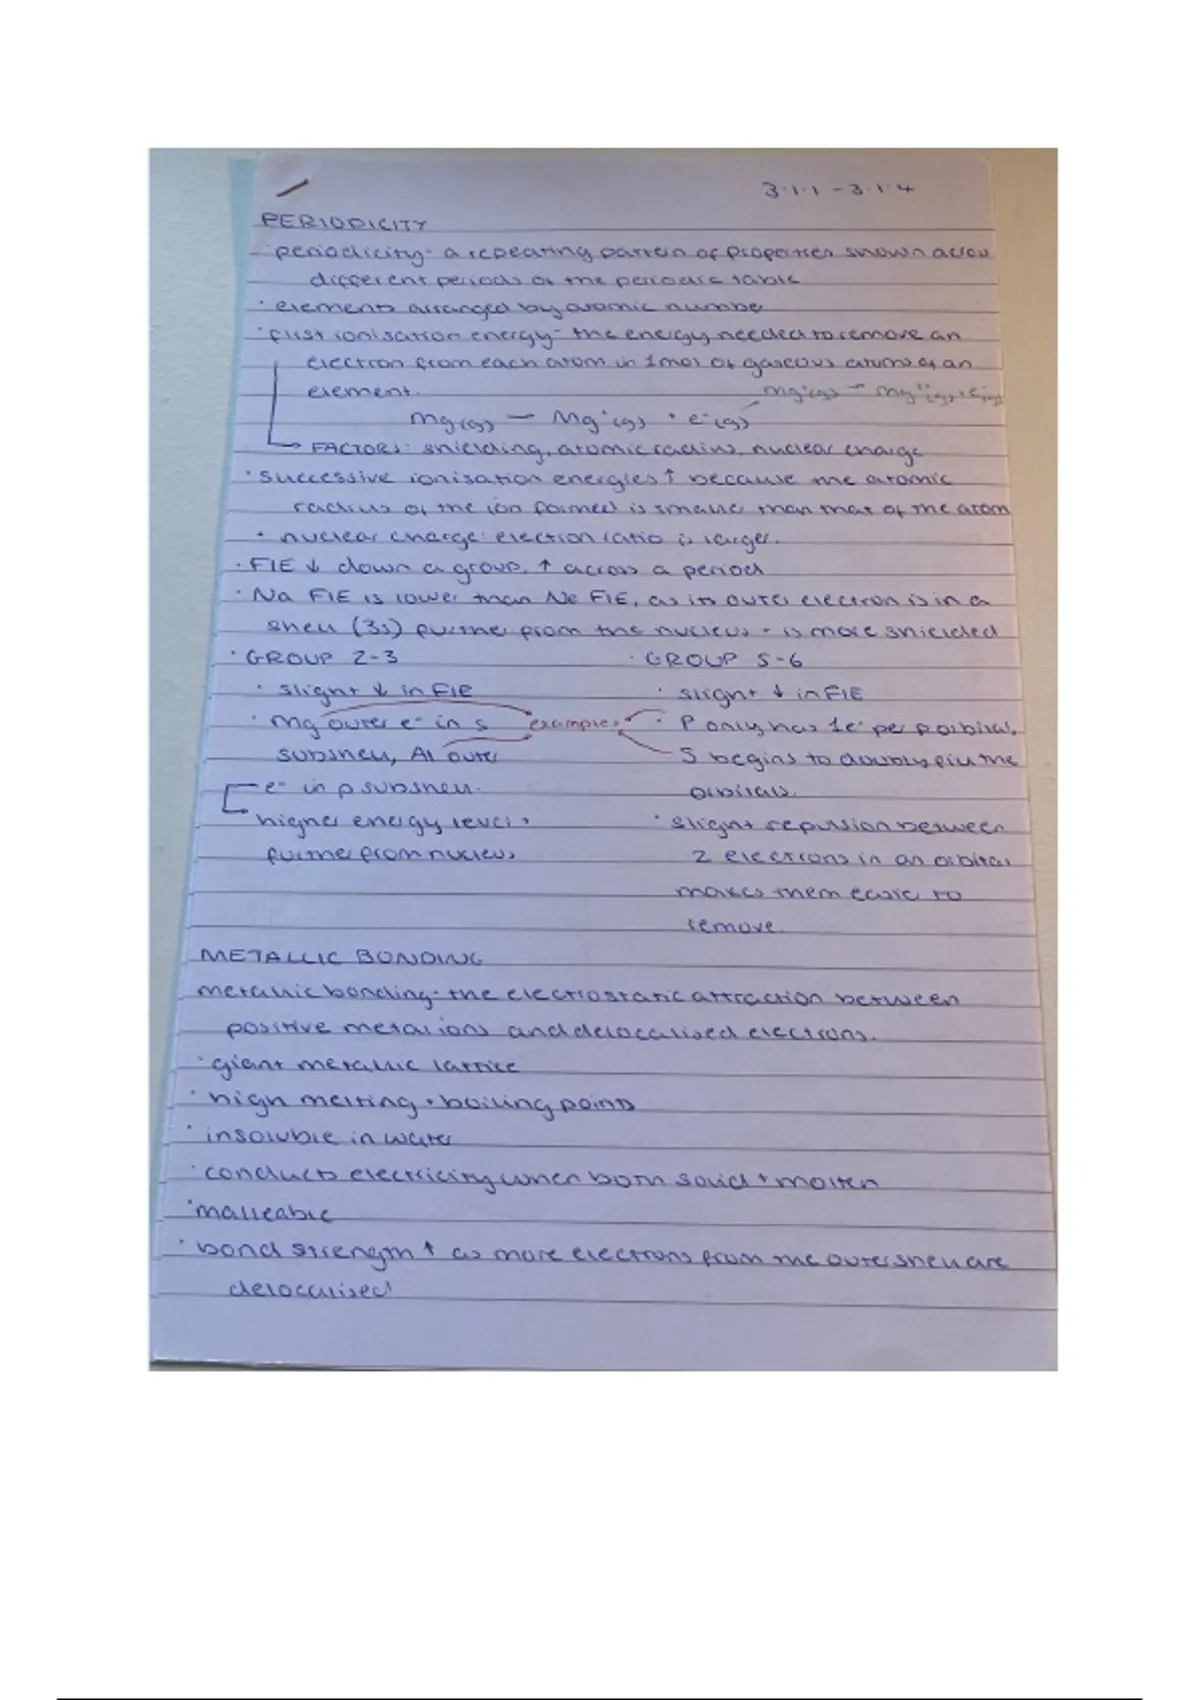 3.1.1 - 3.1.4
PERIODICITY
periodicity - a repeating pattern of properties shown across
different periods of the periodic table
· elements arranged by atomic number
· first ionisation energy - the energy needed to remove an
electron from each atom in 1mol of gaseous atoms of an
element.
Mg⁺(g) → Mg²⁺(g) + e⁻(g)
Mg(g) → Mg⁺(g) + e⁻(g)
FACTORS: shielding, atomic radius, nuclear charge
· successive ionisation energies ↑ because the atomic
radius of the ion formed is smaller than that of the atom
+ nuclear charge : electron ratio is larger.
· FIE ↓ down a group, ↑ across a period
· Na FIE is lower than Ne FIE, as its outer electron is in a
shell (3s) further from the nucleus + is more shielded
· GROUP 2-3
· slight ↓ in FIE
· Mg outer e⁻ in s
subshell, Al outer
e⁻ in p subshell.
higher energy level +
further from nucleus
examples
· GROUP 5-6
· slight ↓ in FIE
· P only has 1e⁻ per p orbital,
S begins to doubly fill the
orbitals.
· slight repulsion between
2 electrons in an orbital
makes them easier to
remove.
METALLIC BONDING
metallic bonding - the electrostatic attraction between
positive metal ions and delocalised electrons.
· giant metallic lattice
· high melting + boiling points
· insoluble in water
· conducts electricity when both solid + molten
· malleable
· bond strength ↑ as more electrons from the outer shell are
delocalised